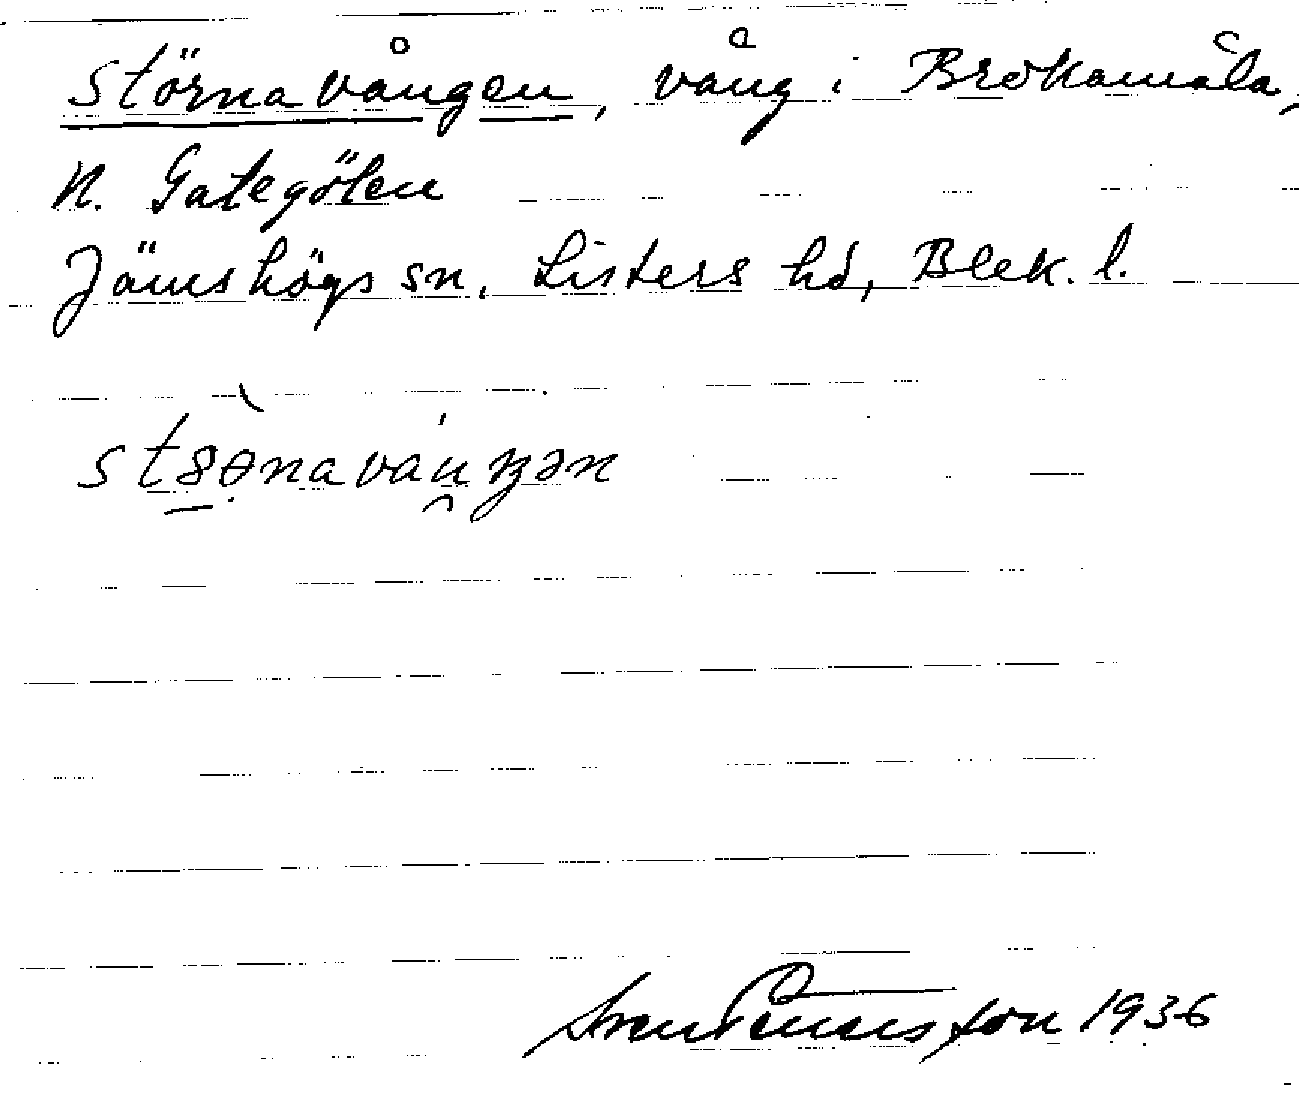 Störnavången, vång i Brokamåla,
N. Gategölen
Jämshögs sn, Listers hd, Blek. l.
1936